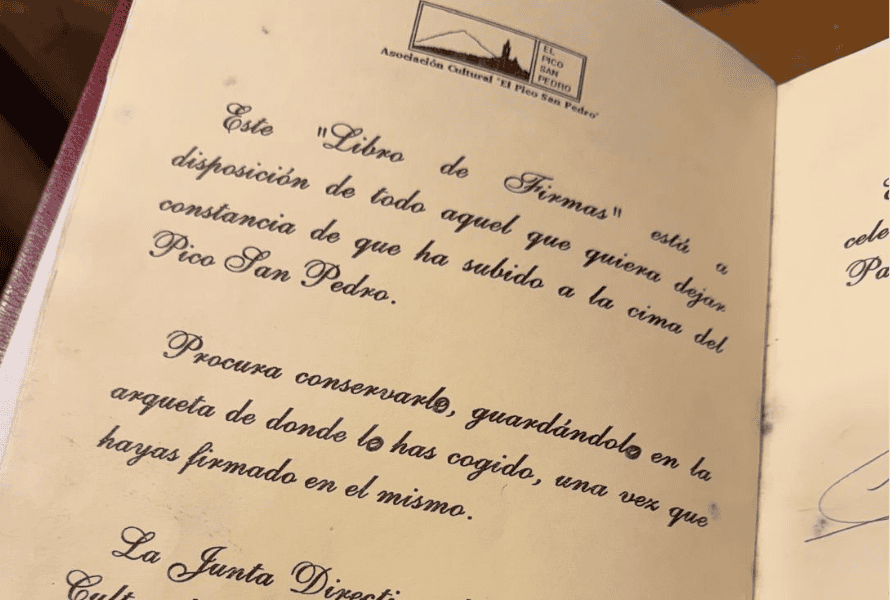 EL
PICO
SAN
PEDRO
Asociación Cultural "El Pico San Pedro"
Este "Libro de Firmas" está a
disposición de todo aquel que quiera dejar
constancia de que ha subido a la cima del
Pico San Pedro.
Procura conservarlo, guardándolo en la
arqueta de donde lo has cogido, una vez que
hayas firmado en el mismo.
La Junta Directi
Cult
cele
Pa